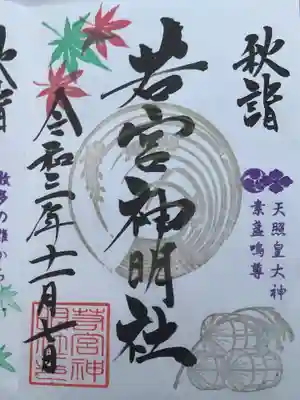 秋詣
天照皇大神
素盞嗚尊
若宮神明社
令和三年十一月七日
若宮神
明社印